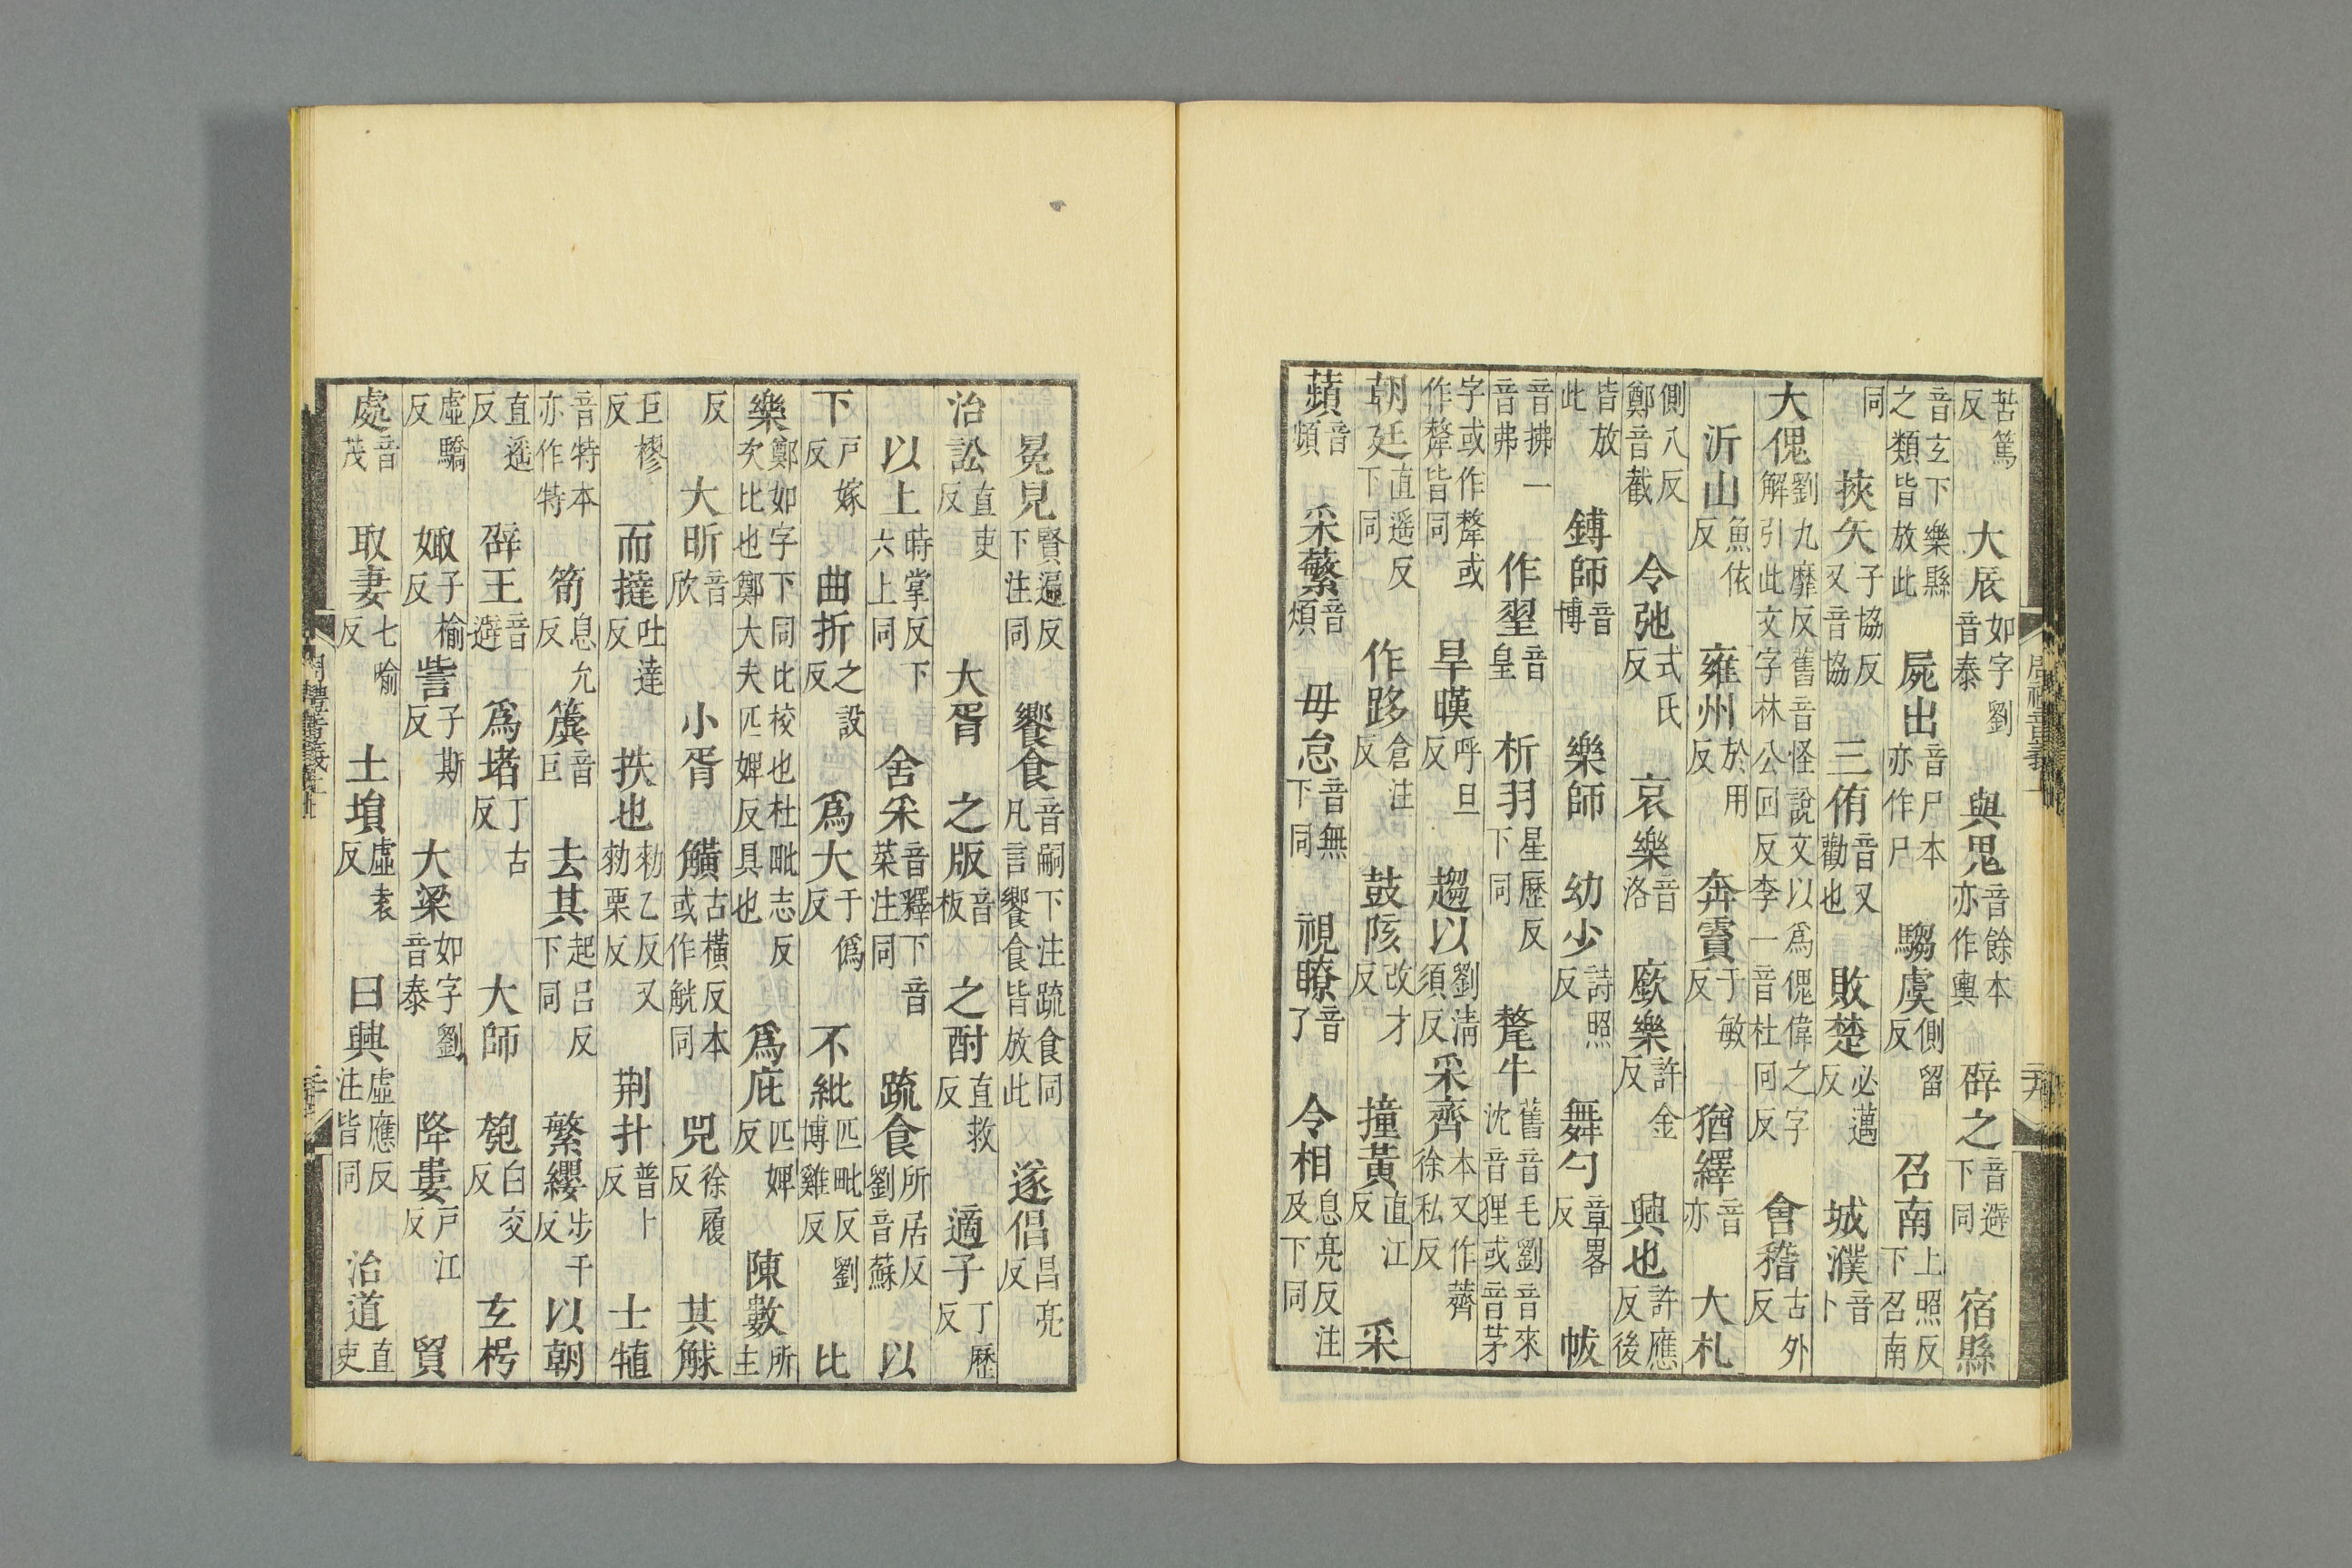 苦篤反　大辰如字劉音泰　與鬼音餘本亦作輿　辟之音避下同　宿縣
音玄下樂縣之類皆放此　屍出音尸本亦作尸　騶虞側留反　召南上照反下召南
同　挾矢子協反又音協　三侑音又勸也　敗楚必邁反　城濮音卜
大傀劉九靡反舊音怪說文以爲傀偉之字解引此文字林公回反李一音杜同反　會稽古外反
沂山魚依反　雍州於用反　奔霣于敏反　猶繹音亦　大札
側八反鄭音截　令弛式氏反　哀樂音洛　廞樂許金反　興也許應反後
皆放此　鏄師音博　樂師　幼少詩照反　舞勺章畧反　帗
音拂一音弗　作䍿音皇　析羽星歷反下同　氂牛舊音毛劉音來沈音狸或音茅
字或作犛或作氂皆同　旱暵呼旦反　趨以劉清須反　采齊本又作薺徐私反
朝廷直遥反下同　作跢倉注反　鼓陔改才反　撞黃直江反　采
蘋音頻　采蘩音煩　毋怠音無下同　視瞭音了　令相息亮反注及下同
冕見賢遍反下注同　饗食音嗣下注疏食同凡言饗食皆放此　遂倡昌亮反
治訟直吏反　大胥　之版音板　之酎直救反　適子丁歷反
以上時掌反下六上同　舍采音釋下音菜注同　疏食所居反劉音蘇　以
下戶嫁反　曲折之設反　爲大于僞反　不紕匹毗反劉博雞反　比
樂鄭如字下同比校也杜毗志反次比也鄭大夫匹婢反具也　爲庇匹婢反　陳數所主
反　大昕音欣　小胥　觵古橫反本或作觥同　兕徐履反　其觩
巨樛反　而撻吐達反　抶也勑乙反又勑栗反　荆扑普卜反　士犆
音特本亦作特　筍息允反　簴音巨　去其起呂反下同　繁纓步干反　以朝
直遥反　辟王音避　爲堵丁古反　大師　匏白交反　玄枵
虛驕反　娵子榆反　訾子斯反　大梁如字劉音泰　降婁戶江反　貿
處音茂　取妻七喻反　土塤虛袁反　曰興虛應反注皆同　治道直吏